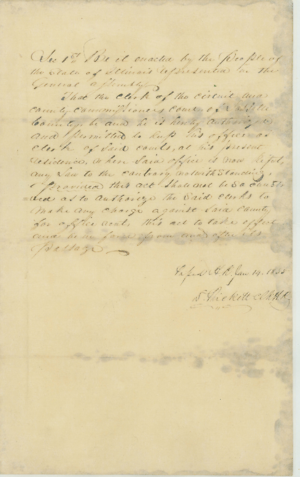 Sec 1st Be it enacted by the People of
the State of Illinois represented in the
General Assembly
That the Clerk of the circuit and
County Commissioners Court of
County be and he is hereby authorised
and permitted to keep his office as
Clerk of said courts, at his present
residence, where said office is now kept,
any law to the contrary notwithstanding
Provided this act shall not be so const
rued as to authorize the said clerk to
make any charge against said County
for office rent, this act to take effect
and be in force from and after its
Passage
Jan 14. 1835